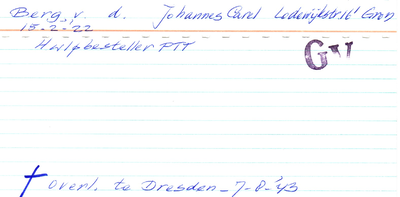 Berg, v. d. Johannes Carel Lodewijkstr. 16' Gron
13-2-22
Hulpbesteller PTT
GV
† overl. te Dresden - 7-8-'43